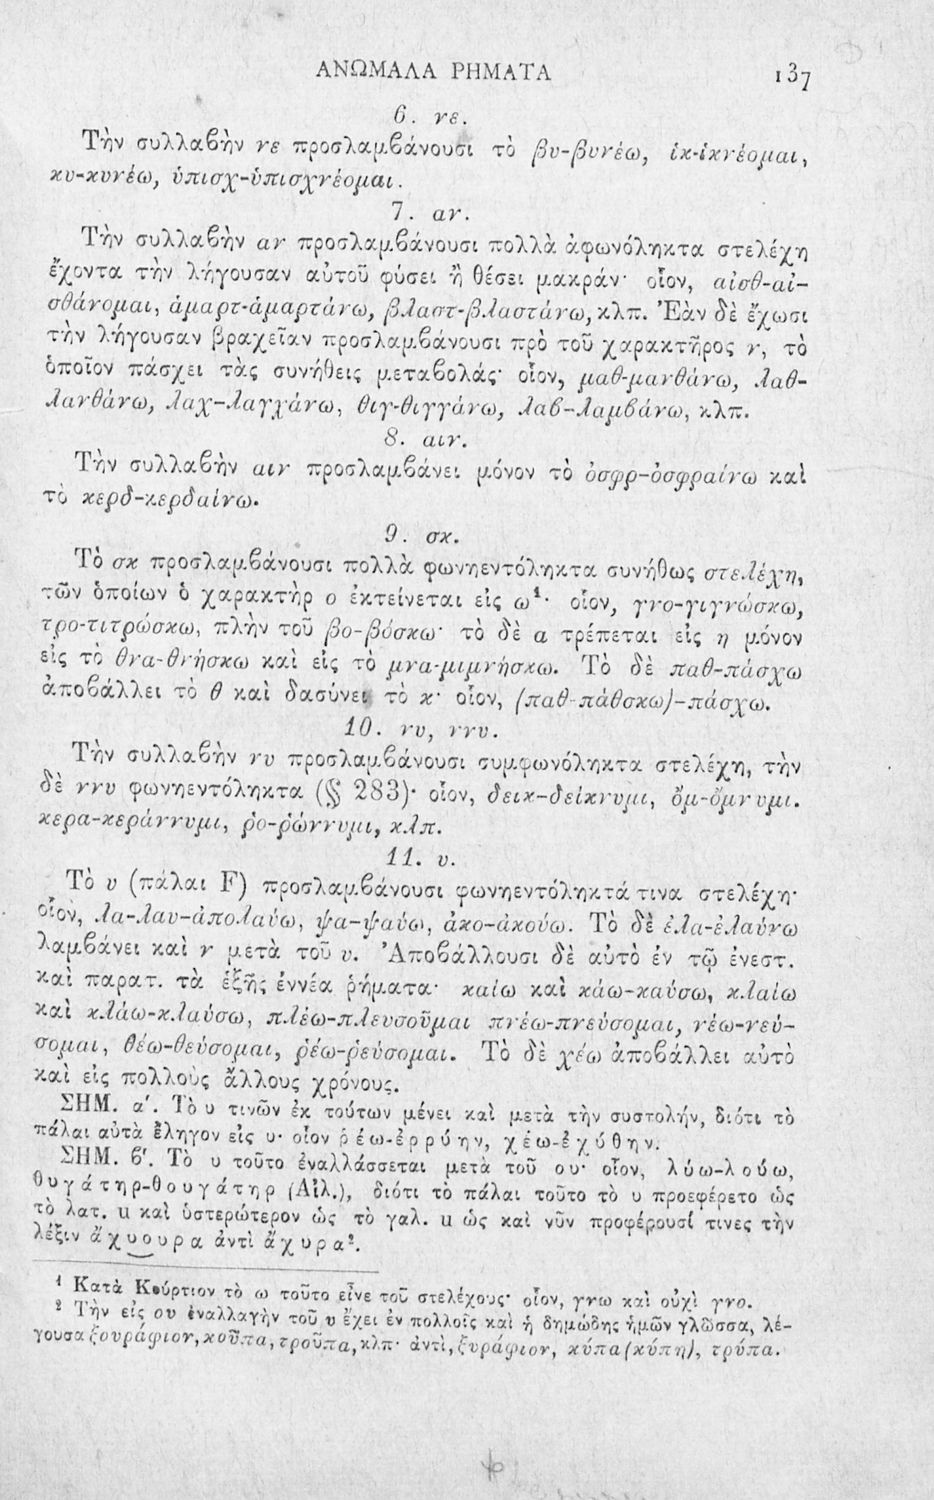 ΑΝΩΜΑΛΑ ΡΗΜΑΤΑ 137
6. νε.
Τὴν συλλαβὴν νε προσλαμβάνουσι τὸ βυ-βυνέω, ἱκ-ἱκνέομαι,
κυ-κυνέω, ὑπισχ-ὑπισχνέομαι.
7. αν.
Τὴν συλλαβὴν αν προσλαμβάνουσι πολλὰ ἀφωνόληκτα στελέχη
ἔχοντα τὴν λήγουσαν αὐτοῦ φύσει ἢ θέσει μακράν· οἷον, αἰσθ-αἰ-
σθάνομαι, ἁμαρτ-ἁμαρτάνω, βλαστ-βλαστάνω, κλπ. Ἐὰν δὲ ἔχωσι
τὴν λήγουσαν βραχεῖαν προσλαμβάνουσι πρὸ τοῦ χαρακτῆρος ν, τὸ
ὁποῖον πάσχει τὰς συνήθεις μεταβολάς· οἷον, μαθ-μανθάνω, λαθ-
λανθάνω, λαχ-λαγχάνω, θιγ-θιγγάνω, λαβ-λαμβάνω, κλπ.
8. αιν.
Τὴν συλλαβὴν αιν προσλαμβάνει μόνον τὸ ὀσφρ-ὀσφραίνω καὶ
τὸ κερδ-κερδαίνω.
9. σκ.
Τὸ σκ προσλαμβάνουσι πολλὰ φωνηεντόληκτα συνήθως στελέχη,
τῶν ὁποίων ὁ χαρακτὴρ ο ἐκτείνεται εἰς ω¹· οἷον, γνο-γιγνώσκω,
τρο-τιτρώσκω, πλὴν τοῦ βο-βόσκω· τὸ δὲ α τρέπεται εἰς η μόνον
εἰς τὸ θνα-θνήσκω καὶ εἰς τὸ μνα-μιμνήσκω. Τὸ δὲ παθ-πάσχω
ἀποβάλλει τὸ θ καὶ δασύνει τὸ κ· οἷον, (παθ-πάθσκω)-πάσχω.
10. νυ, ννυ.
Τὴν συλλαβὴν νυ προσλαμβάνουσι συμφωνόληκτα στελέχη, τὴν
δὲ ννυ φωνηεντόληκτα (§ 283)· οἷον, δεικ-δείκνυμι, ὄμ-ὄμνυμι.
κερα-κεράννυμι, ῥο-ῥώννυμι, κλπ.
11. υ.
Τὸ υ (πάλαι F) προσλαμβάνουσι φωνηεντόληκτά τινα στελέχη·
οἷον, λα-λαυ-ἀπολαύω, ψα-ψαύω, ἀκο-ἀκούω. Τὸ δὲ ἐλα-ἐλαύνω
λαμβάνει καὶ ν μετὰ τοῦ υ. Ἀποβάλλουσι δὲ αὐτὸ ἐν τῷ ἐνεστ.
καὶ παρατ. τὰ ἑξῆς ἐννέα ῥήματα· καίω καὶ κάω-καύσω, κλαίω
καὶ κλάω-κλαύσω, πλέω-πλευσοῦμαι πνέω-πνεύσομαι, νέω-νεύ-
σομαι, θέω-θεύσομαι, ῥέω-ῥεύσομαι. Τὸ δὲ χέω ἀποβάλλει αὐτὸ
καὶ εἰς πολλοὺς ἄλλους χρόνους.
ΣΗΜ. α΄. Τὸ υ τινῶν ἐκ τούτων μένει καὶ μετὰ τὴν συστολήν, διότι τὸ
πάλαι αὐτὰ ἔληγον εἰς υ· οἷον ῥέω-ἐρρύην, χέω-ἐχύθην.
ΣΗΜ. β΄. Τὸ υ τοῦτο ἐναλλάσσεται μετὰ τοῦ ου· οἷον, λύω-λούω,
θυγάτηρ-θουγάτηρ (Αἰλ.), διότι τὸ πάλαι τοῦτο τὸ υ προεφέρετο ὡς
τὸ λατ. u καὶ ὑστερώτερον ὡς τὸ γαλ. u ὡς καὶ νῦν προφέρουσί τινες τὴν
λέξιν ἄχυουρα ἀντὶ ἄχυρα².
¹ Κατὰ Κούρτιον τὸ ω τοῦτο εἶνε τοῦ στελέχους· οἷον, γνω καὶ οὐχὶ γνο.
² Τὴν εἰς ου ἐναλλαγὴν τοῦ υ ἔχει ἐν πολλοῖς καὶ ἡ δημώδης ἡμῶν γλῶσσα, λέ-
γουσα ξουράφιον, κοῦπα, τροῦπα, κλπ· ἀντὶ, ξυράφιον, κύπα (κύπη), τρύπα.